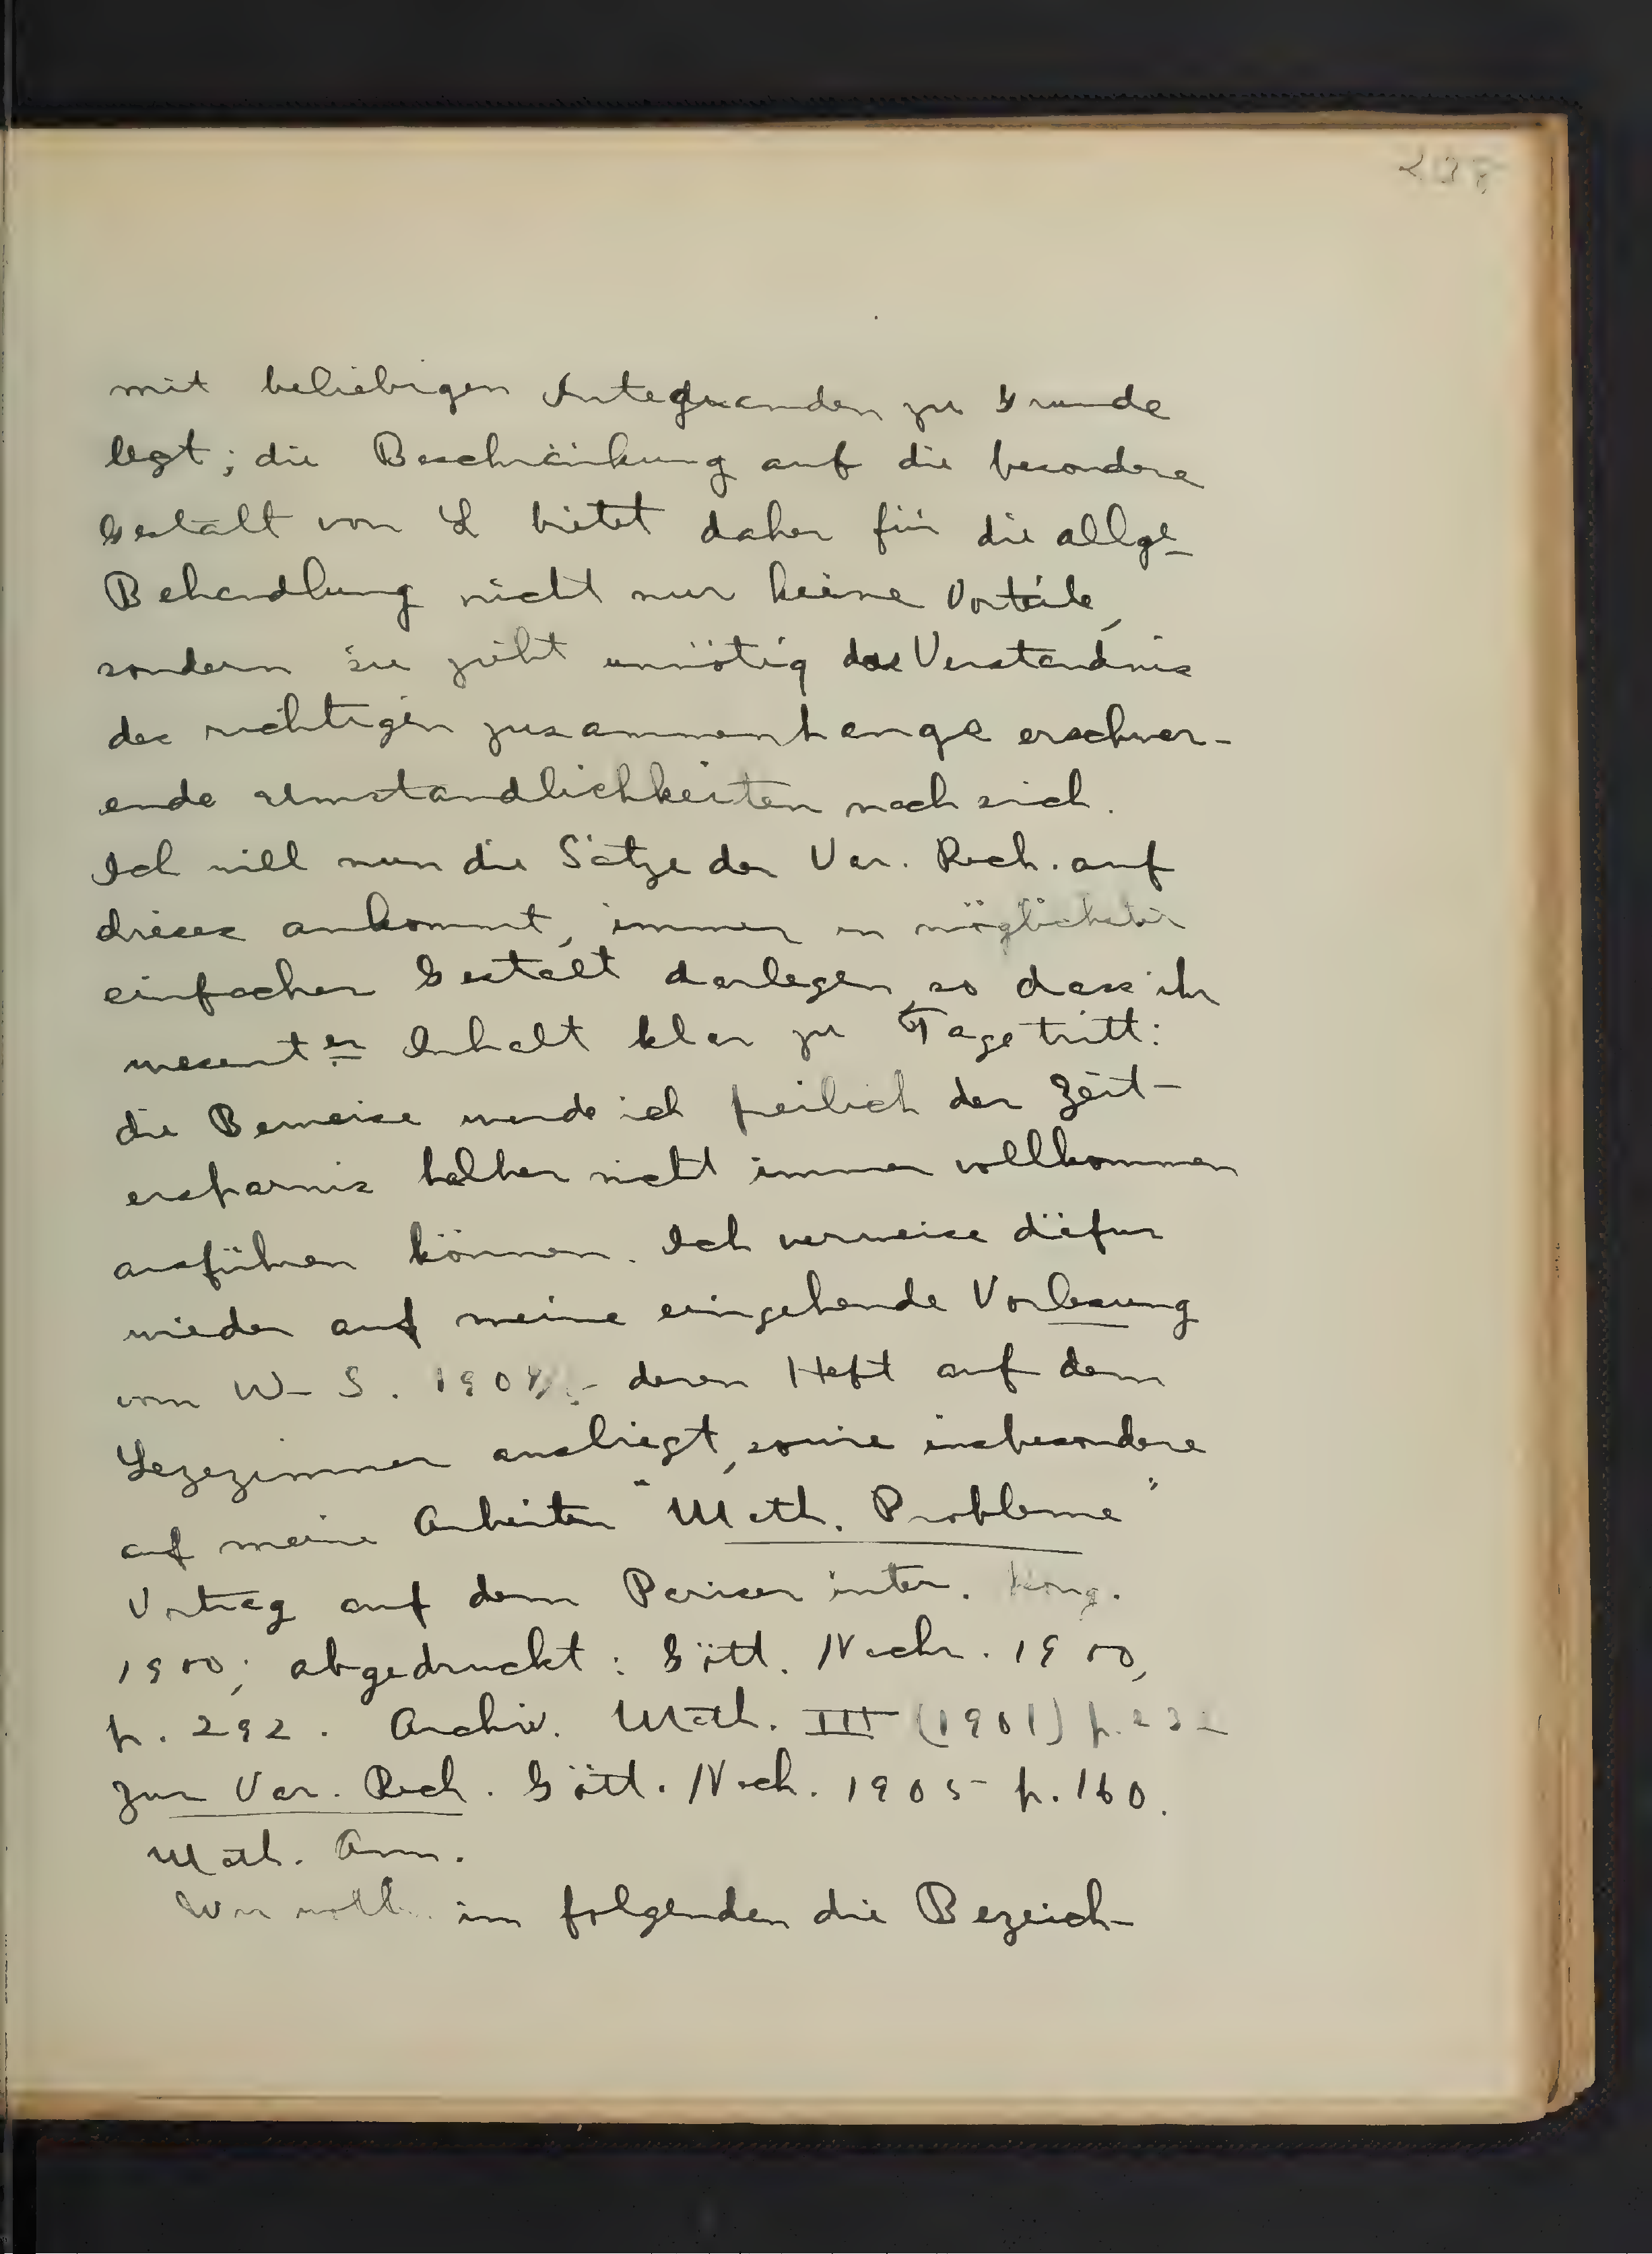 mit beliebigen Integranden zu Grunde
legt; die Beschränkung auf die besondere
Gestalt von L bietet daher für die allge-
Behandlung nicht nur keine Vorteile,
sondern sie zieht unnötig das Verständnis
des richtigen zusammenhangs erschwer-
ende Umstandlichkeiten nach sich.
Ich will nun die Sätze der Var. Rech. auf
dieses ankommt, immer in möglichster
einfacher Gestalt darlegen so dass ihr
wesent er Inhalt klar zu Tage tritt:
die Beweise werde ich freilich der Zeit-
ersparnis halber nicht immer vollkommen
ausführen können. Ich verweise dafür
wieder auf meine eingehende Vorlesung
vom W-S. 1904/5 deren Heft auf dem
Lezezimmer ausliegt, sowie insbesondere
auf meine Arbeiten "Math. Probleme"
Vortrag auf dem Pariser inter. Kong.
1900; abgedruckt: Gött. Nachr. 1900,
p. 292. Archiv. Math. III (1901) p. 232
Zur Var. Rech. Gött. Nach. 1905 p. 160.
Math. Ann.
Wir woll. im folgenden die Bezeich-